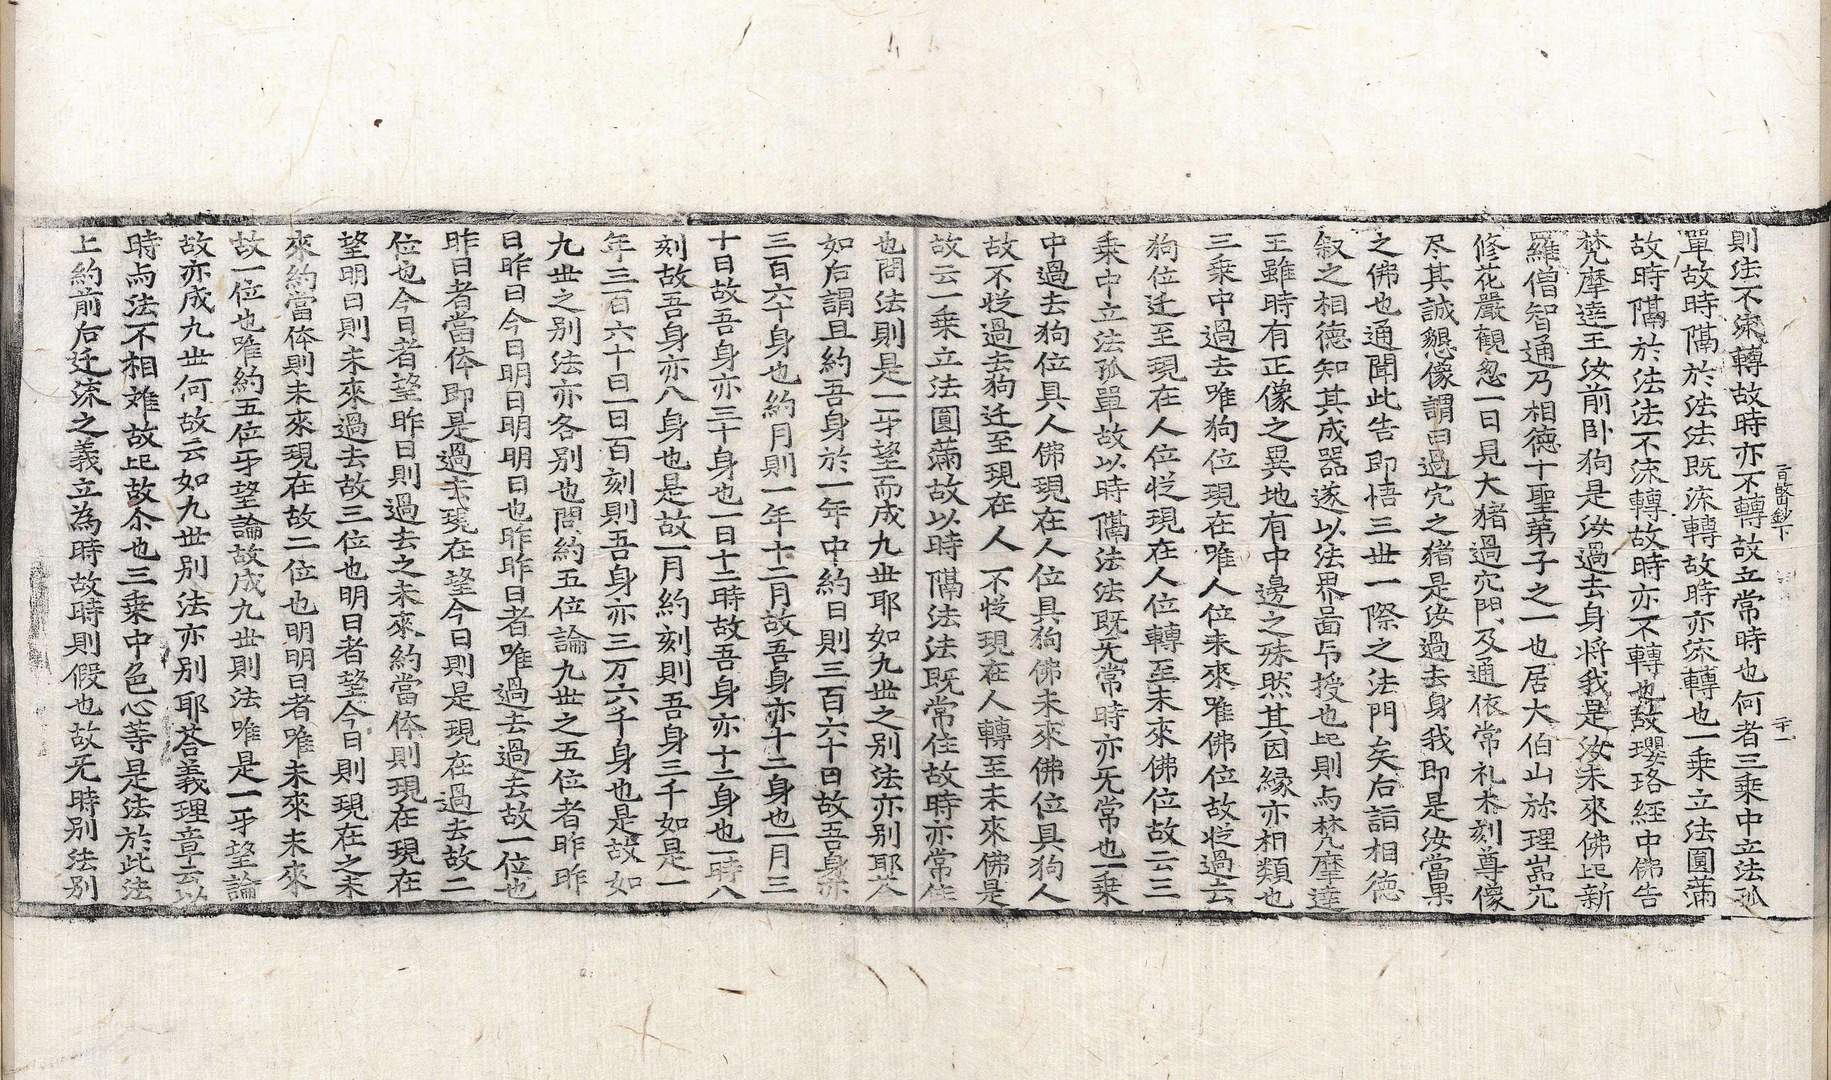 則法不流轉故時亦不轉故立常時也何者三乗中立法孤
單故時隔於法法既流轉故時亦流轉也一乗立法圓滿
故時隔於法法不流轉故時亦不轉也故瓔珞經中佛告
梵摩達王汝前卧狗是汝過去身将我是汝未來佛此新
羅僧智通乃相德十聖弟子之一也居大伯山弥理嵓穴
修花嚴観忽一日見大猪過穴門及通依常礼木刻尊像
尽其誠懇像謂曰過穴之猪是汝過去身我即是汝當果
之佛也通聞此告即悟三世一際之法門矣后詣相德
叙之相德知其成器遂以法界啚卬授也此則与梵摩達
王雖時有正像之異地有中邊之殊然其因縁亦相類也
三乗中過去唯狗位現在唯人位未來唯佛位故従過去
狗位迁至現在人位従現在人位轉至未來佛位故云三
乗中立法孤單故以時隔法法既无常時亦无常也一乗
中過去狗位具人佛現在人位具狗佛未來佛位具狗人
故不従過去狗迁至現在人不従現在人轉至未來佛是
故云一乗立法圓滿故以時隔法法既常住故時亦常住
也問法則是一牙望而成九世耶如九世之别法亦别耶荅
如右謂且約吾身於一年中約日則三百六十日故吾身亦
三百六十身也約月則一年十二月故吾身亦十二身也一月三
十日故吾身亦三十身也一日十二時故吾身亦十二身也一時八
刻故吾身亦八身也是故一月約刻則吾身三千如是一
年三百六十日一日百刻則吾身亦三万六千身也是故如
九世之别法亦各别也問約五位論九世之五位者昨昨
日昨日今日明日明明日也昨昨日者唯過去過去故一位也
昨日者當体即是過去現在望今日則是現在過去故二
位也今日者望昨日則過去之未來約當体則現在現在
望明日則未來過去故三位也明日者望今日則現在之未
來約當体則未來現在故二位也明明日者唯未來未來
故一位也唯約五位牙望論故成九世則法唯是一牙望論
故亦成九世何故云如九世别法亦别耶荅義理章云以
時与法不相離故此故尒也三乗中色心等是法於此法
上約前后迁流之義立為時故時則假也故无時别法别
百啓鈔下
二十一